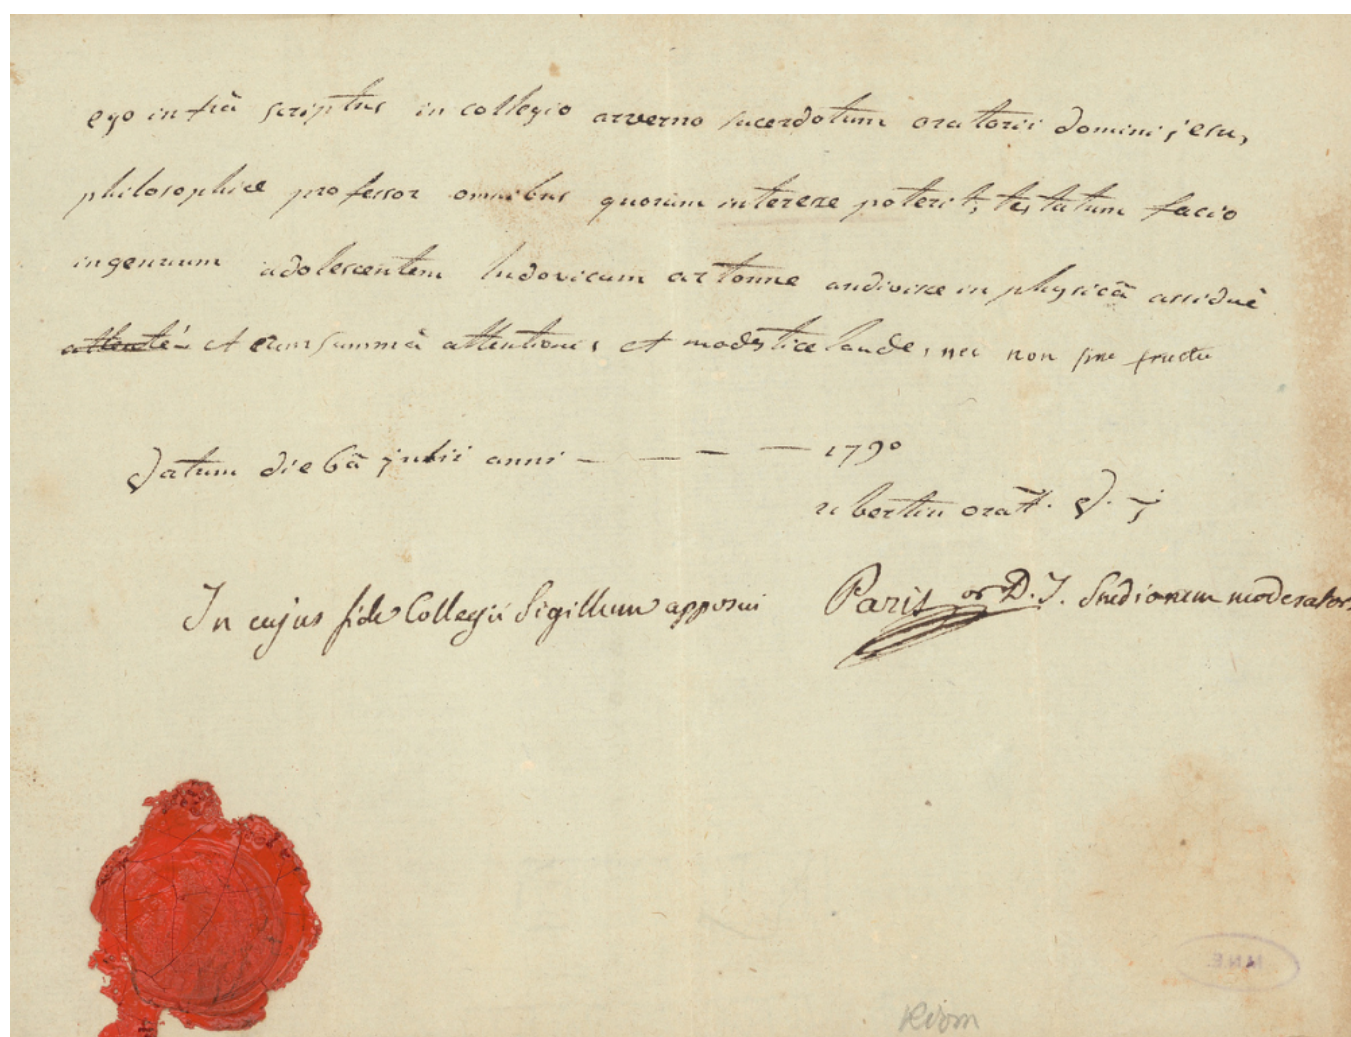 ego infrà scriptus in collegio arverno sacerdotum oratorii domini jesu,
philosophiæ professor omnibus quorum interesse poterit, testatum facio
ingenuum adolescentem ludovicum artonne audivisse in physicâ assiduè
attentè et cum summâ attentionis et modestiæ laude, nec non sine fructu
Datum die 6â julii anni - — - — 1790
orat. D. j
In cujus fide Collegii Sigillum apposui Paris or D. J. Studiorum moderator
MNE
Riom